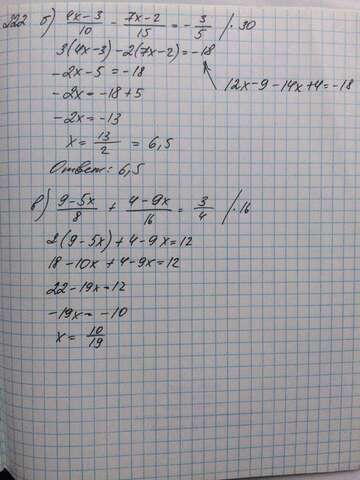 222 б) (4x-3)/10 - (7x-2)/15 = -3/5 /·30
3(4x-3)-2(7x-2)=-18
12x-9-14x+4=-18
-2x-5=-18
-2x=-18+5
-2x=-13
x=13/2=6,5
Ответ: 6,5
в) (9-5x)/8 + (4-9x)/16 = 3/4 /·16
2(9-5x)+4-9x=12
18-10x+4-9x=12
22-19x=12
-19x=-10
x=10/19